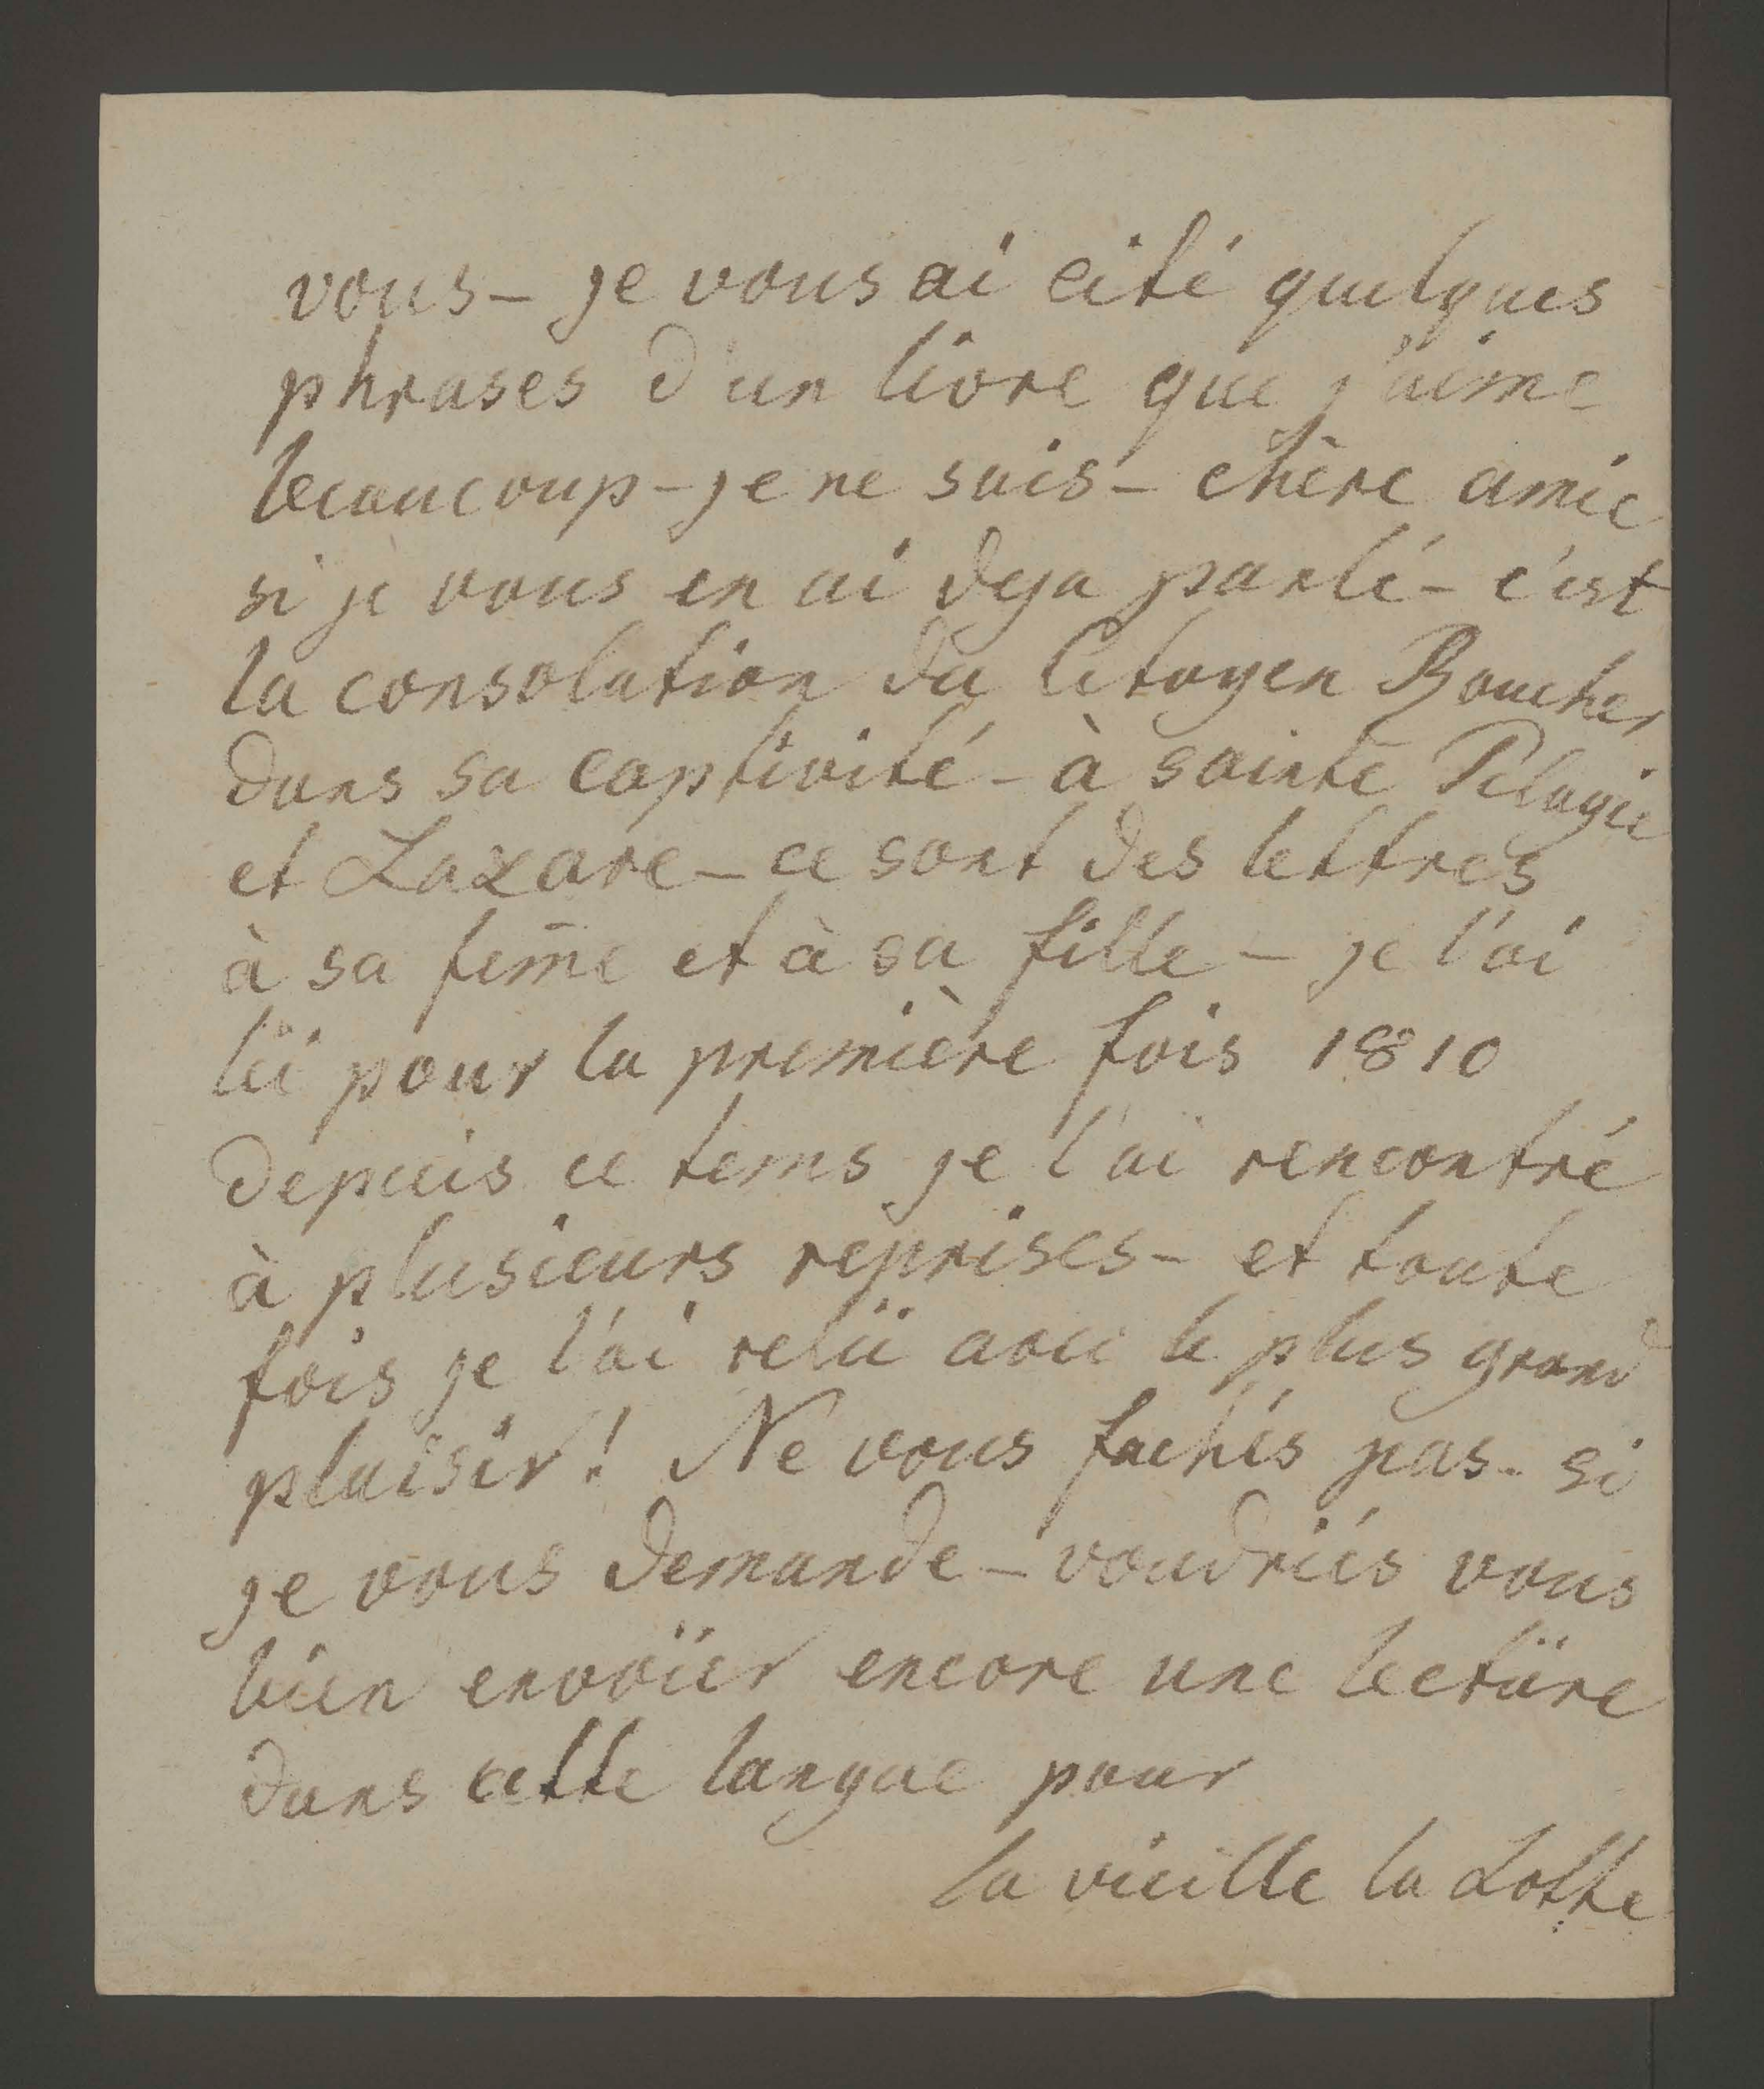 vous – je vous ai cité quelques
phrases d'un livre que j'aime
beaucoup – je ne sais – chère amie
si je vous en ai deja parlé – c'est
la consolation du Citoyen Boucher
dans sa captivité – à sainte Pelagie
et Lazare – ce sont des lettres
à sa fem̄e et à sa fille – je l'ai
lü pour la première fois 1810
depuis ce tems je l'ai rencontré
à plusieurs reprises – et toute
fois je l'ai relü avec le plus grand
plaisir! Ne vous fachés pas – si
je vous demande – voudriés vous
bien envoïer encore une lectüre
dans cette langue pour
la vieille la Lotte